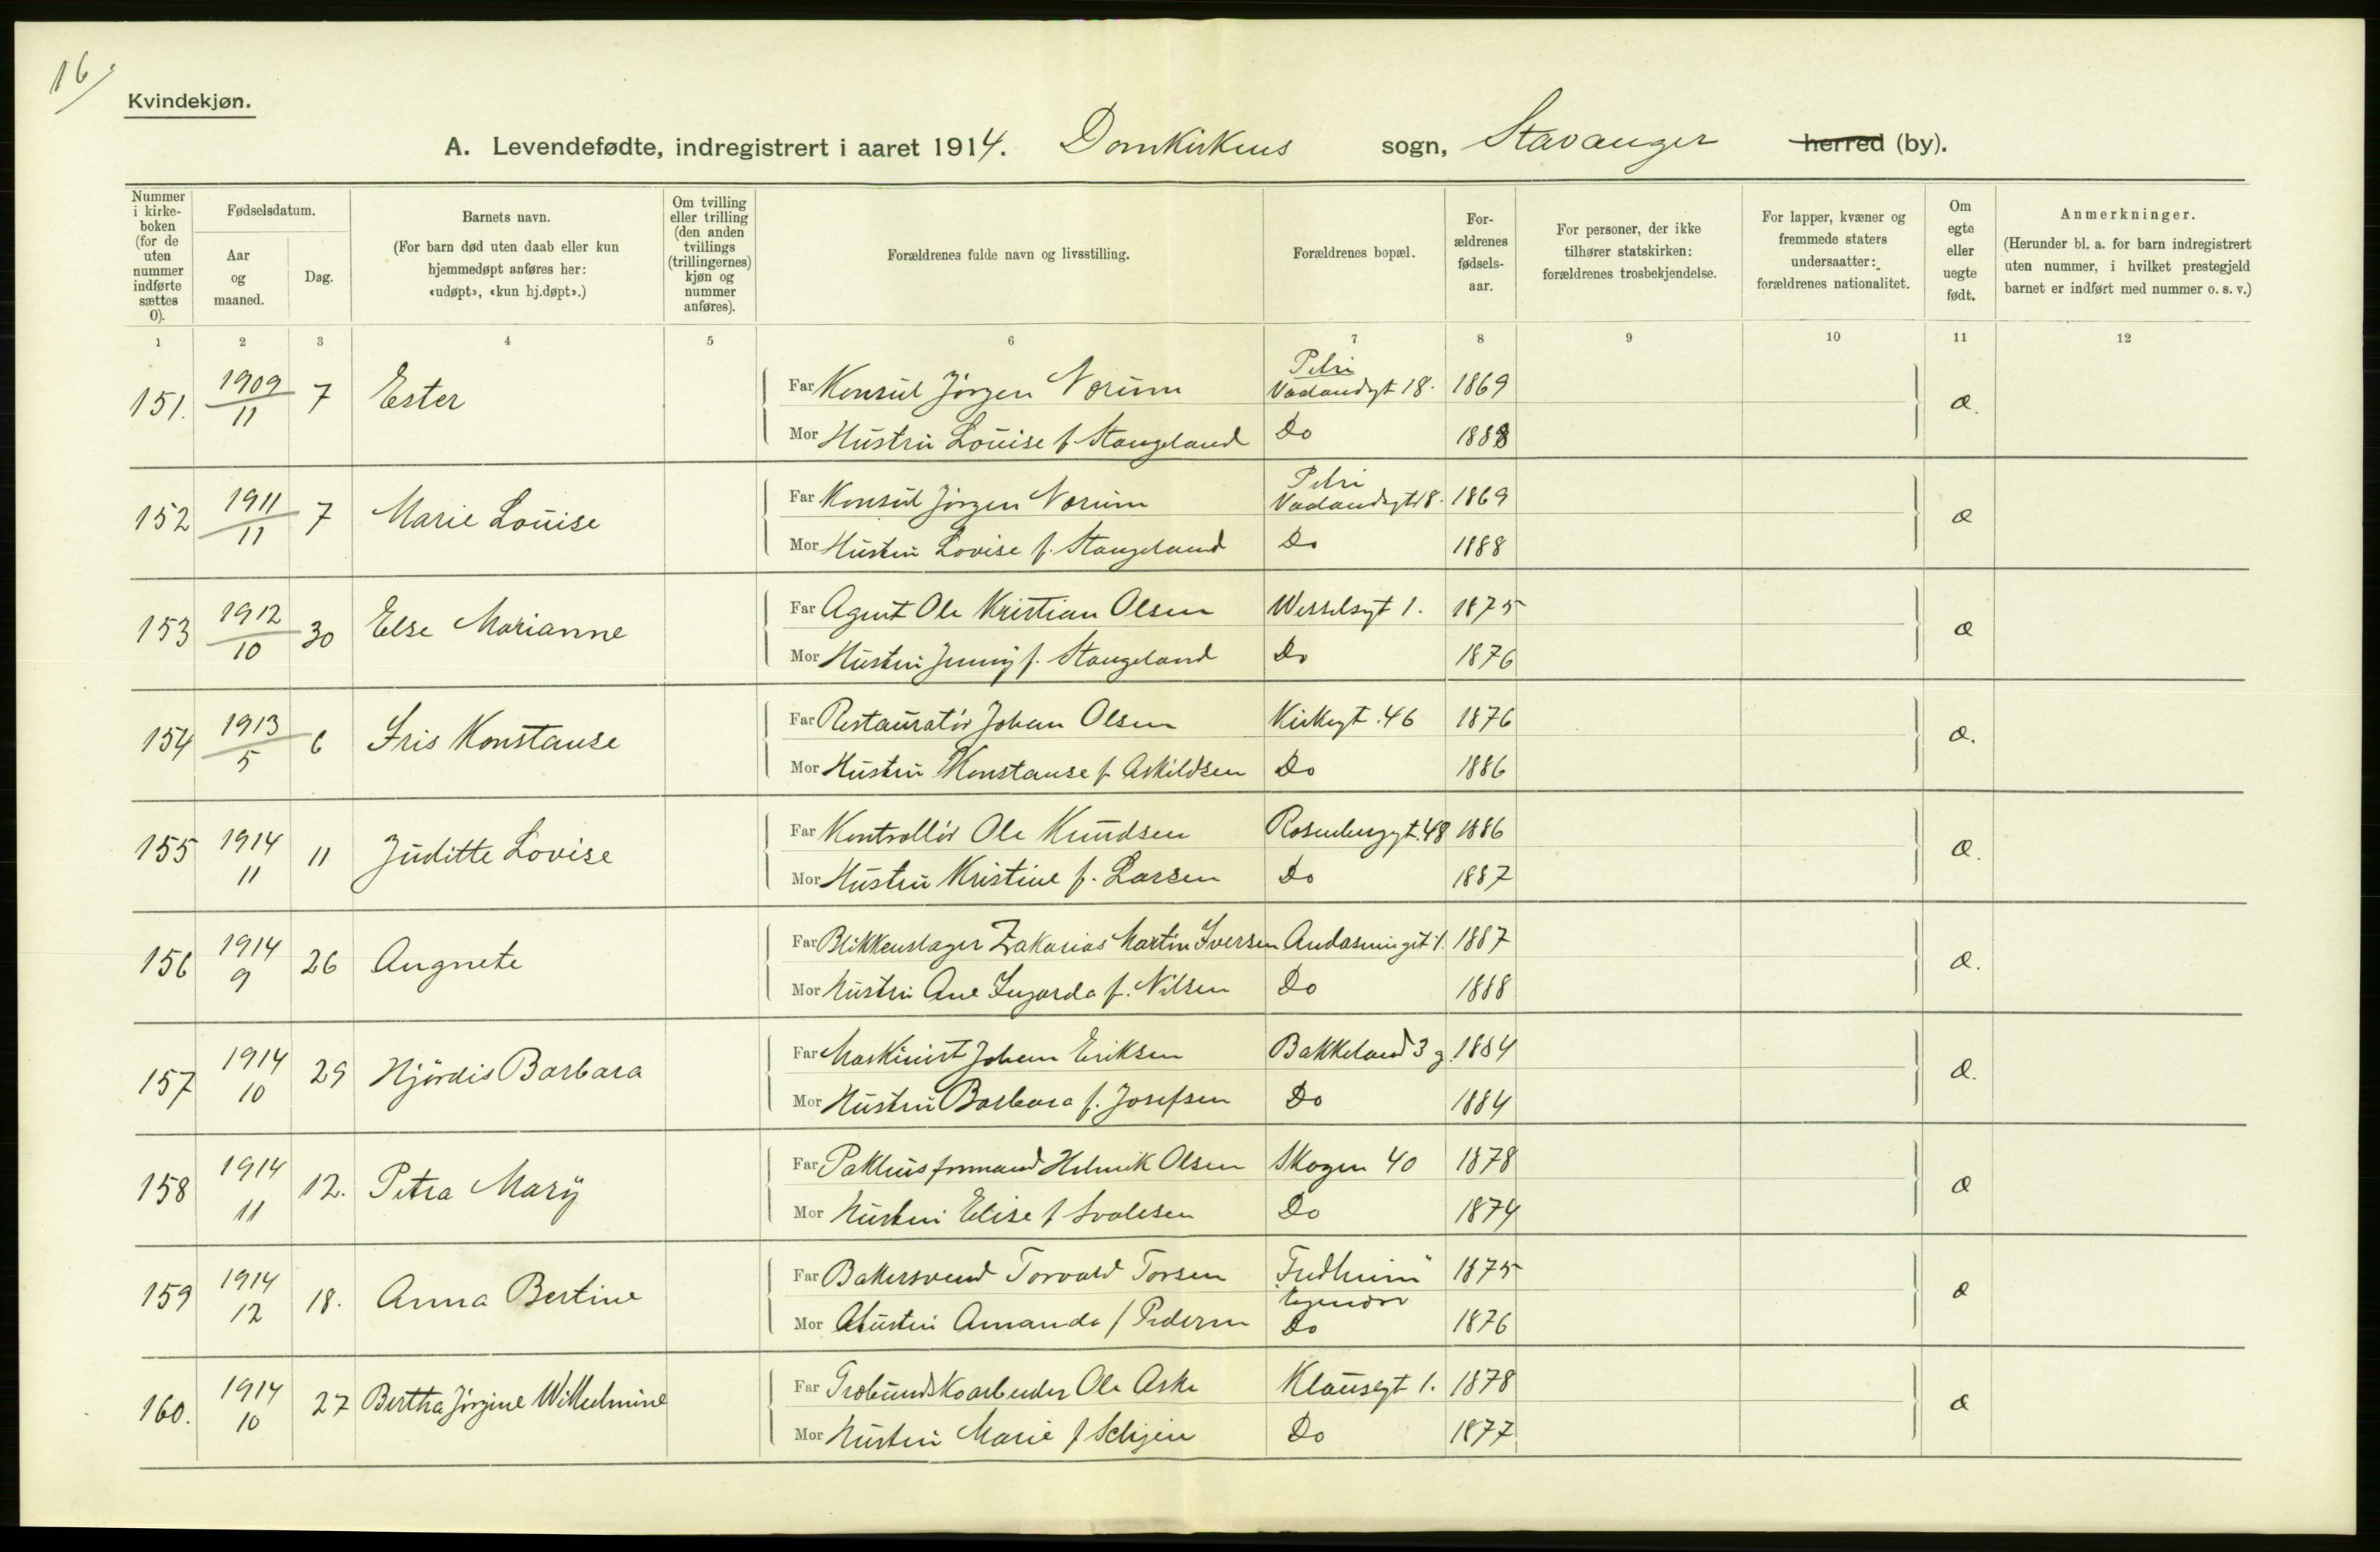 16/
Kvindekjøn.
A. Levendefødte, indregistrert i aaret 1914. Domkirkens sogn, Stavanger herred (by).
Nummer i kirke-boken (for de uten nummer indførte sættes 0).
Fødselsdatum.
Aar og maaned.
Dag.
Barnets navn.
(For barn død uten daab eller kun hjemmedøpt anføres her: «udøpt», «kun hj.døpt».)
Om tvilling eller trilling (den anden tvillings (trillingernes) kjøn og nummer anføres).
Forældrenes fulde navn og livsstilling.
Forældrenes bopæl.
For-ældrenes fødsels-aar.
For personer, der ikke tilhører statskirken: forældrenes trosbekjendelse.
For lapper, kvæner og fremmede staters undersaatter: forældrenes nationalitet.
Om egte eller uegte født.
Anmerkninger.
(Herunder bl. a. for barn indregistrert uten nummer, i hvilket prestegjeld barnet er indført med nummer o. s. v.)
1 2 3 4 5 6 7 8 9 10 11 12
151. 1909 11 7 Ester Far Konsul Jörgen Nærum Petri Vaalandsgt 18. 1869 æ.
Mor Hustru Louise f. Stangeland Do 1888
152 1911 11 7 Marie Louise Far Konsul Jörgen Nærum Petri Vaalandsgt 18. 1869 æ
Mor Hustru Lovise f. Stangeland Do 1888
153 1912 10 30 Else Marianne Far Agent Ole Kristian Olsen Wesselsgt 1. 1875 æ
Mor Hustru Jenny f. Stangeland Do 1876
154 1913 5 6 Iris Konstanse Far Restauratör Johan Olsen Kirkegt. 46 1876 æ.
Mor Hustru Konstanse f. Askildsen Do 1886
155 1914 11 11 Juditte Lovise Far Kontrollör Ole Knudsen Rosenberggt. 48 1886 æ.
Mor Hustru Kristine f. Larsen Do 1887
156 1914 9 26 Angnete Far Blikkenslager Zakarias Martin Iversen 1. 1887 æ.
Mor Hustru Ane Ingarda f. Nilsen Do 1888
157 1914 10 29 Hjördis Barbara Far Maskinist Johan Eriksen Bakkeland 3 g. 1884 æ.
Mor Hustru Barbara f. Josefsen Do 1884
158 1914 11 12. Petra Marÿ Far Pakhusformand Henrik Olsen Skagen 40 1878 æ
Mor Hustru Elise f Svalesen Do 1874
159 1914 12 18. Anna Bertine Far Bakersvend Torvald Torsen "Fredheim" 1875 æ
Mor Hustru Amanda f Pedersen Do 1876
160. 1914 10 27 Bertha Jörgine Wilhelmine Far Ole Aske Klausegt 1. 1878 æ
Mor Hustru Marie f Do 1877